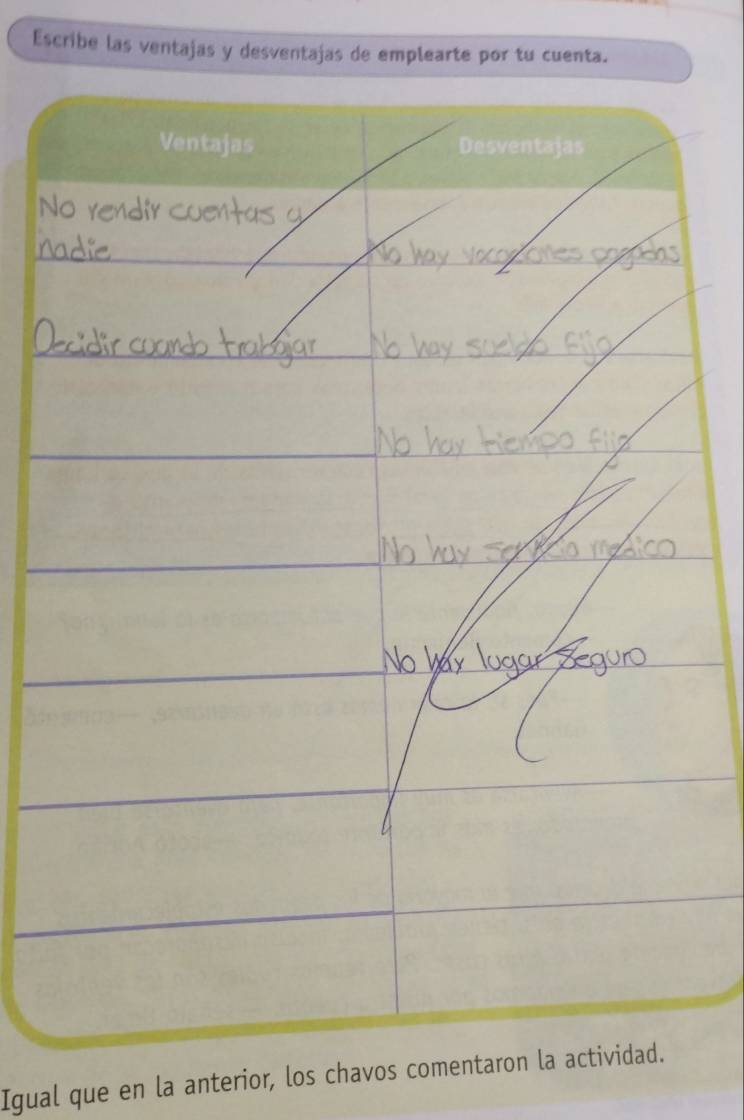 Escribe las ventajas y desventajas de emplearte por tu cuenta.
Ventajas
Desventajas
No rendir cuentas a
nadie
No hay vacaciones pagadas
Decidir cuando trabajar
No hay sueldo fijo
No hay tiempo fijo
No hay servicio medico
No hay lugar seguro
Igual que en la anterior, los chavos comentaron la actividad.